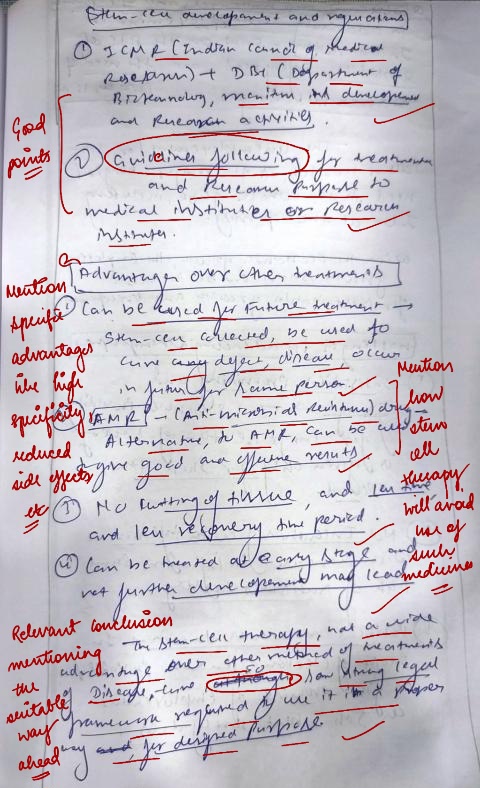 Stem-cell developement and regulations
① ICMR (Indian Council of medical
Research) + DBT (Department of
Biotechnology, monitors its developement
and Research activities.
Good
points
② Guidelines following for treatment
and Research Purpose to
medical institutes or Research
institutes.
Advantages over other treatments
Mention
specific
advantages
like high
specificity,
reduced
side effects
etc
① Can be used for Future treatment →
Stem-cell collected, be used to
cure any defect, disease, occur
in future for same person.
AMR - (Anti-microbial Resistance) drug-
Alternative, to AMR, can be used
give good and effective results
Mention
how
stem
cell
therapy
will avoid
use of
such
medicines
No cutting of tissue, and less time
and less recovery time period.
Can be treated at early stage and
not further developement may lead
Relevant conclusion
mentioning
the
suitable
way
ahead
The Stem-cell therapy, has a wide
advantage over other method of treatments
of Disease, cure strong legal
framework required to use it in a proper
way for designed purpose.